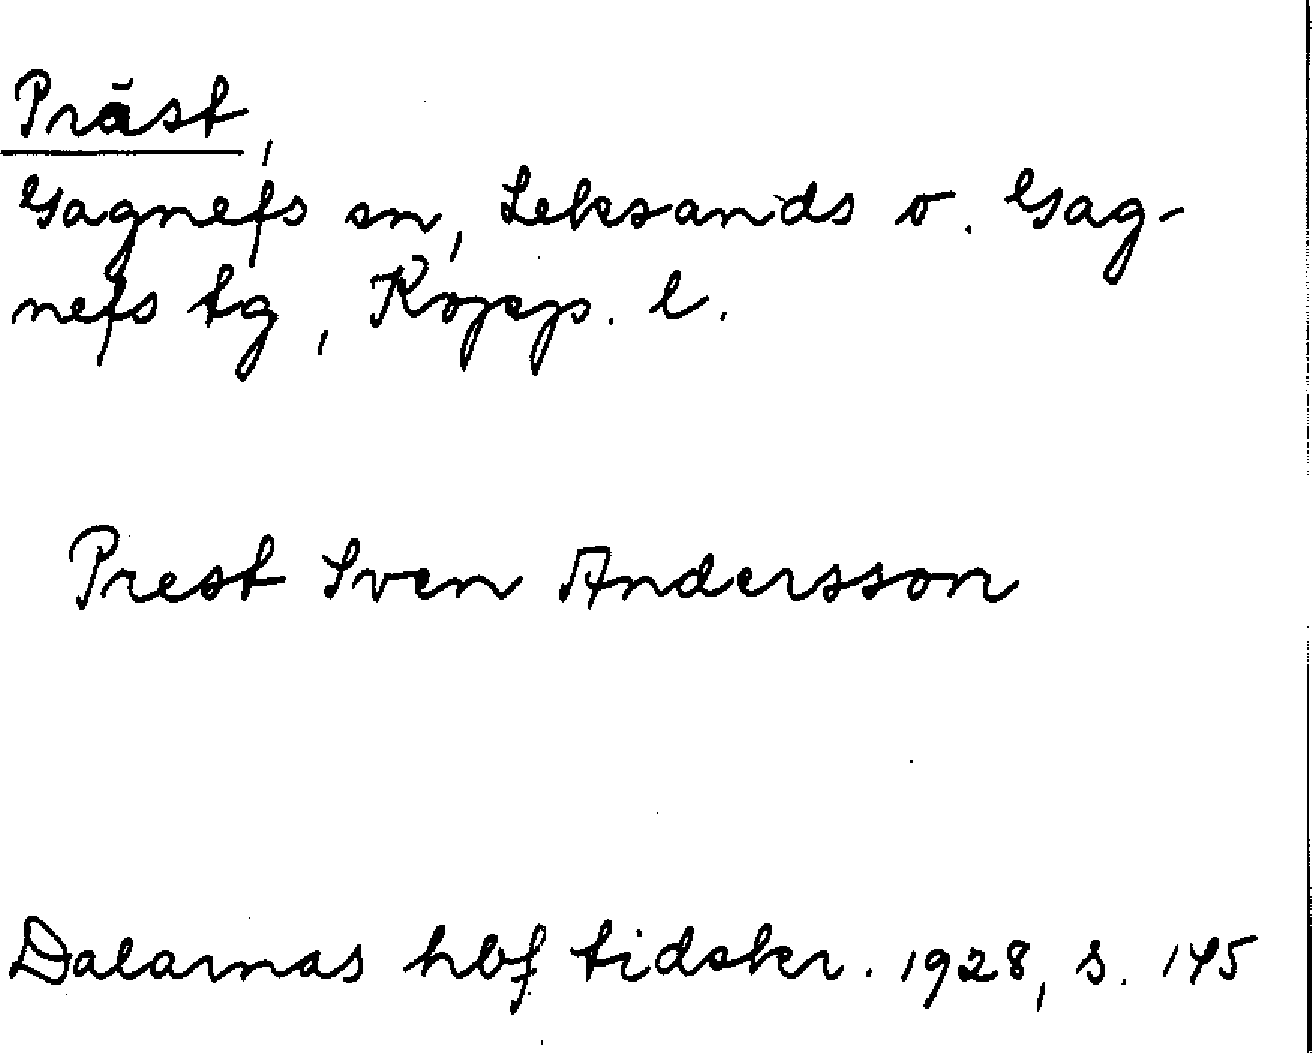 Präst,
Gagnefs sn, Leksands o. Gag-
nefs tg, Kopp. l.
Prest Sven Andersson
Dalarnas hbf tidskr. 1928, s. 145